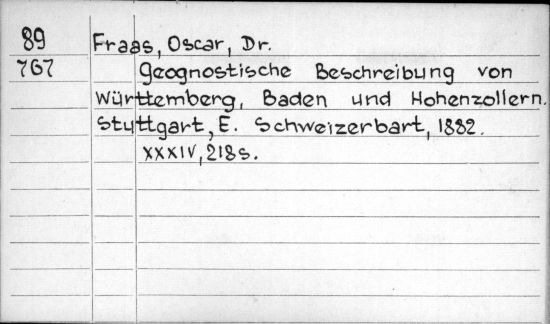 89 Fraas, Oscar, Dr.
767 Geognostische Beschreibung von
Württemberg, Baden und Hohenzollern.
Stuttgart, E. Schweizerbart, 1882.
XXXIV, 218s.